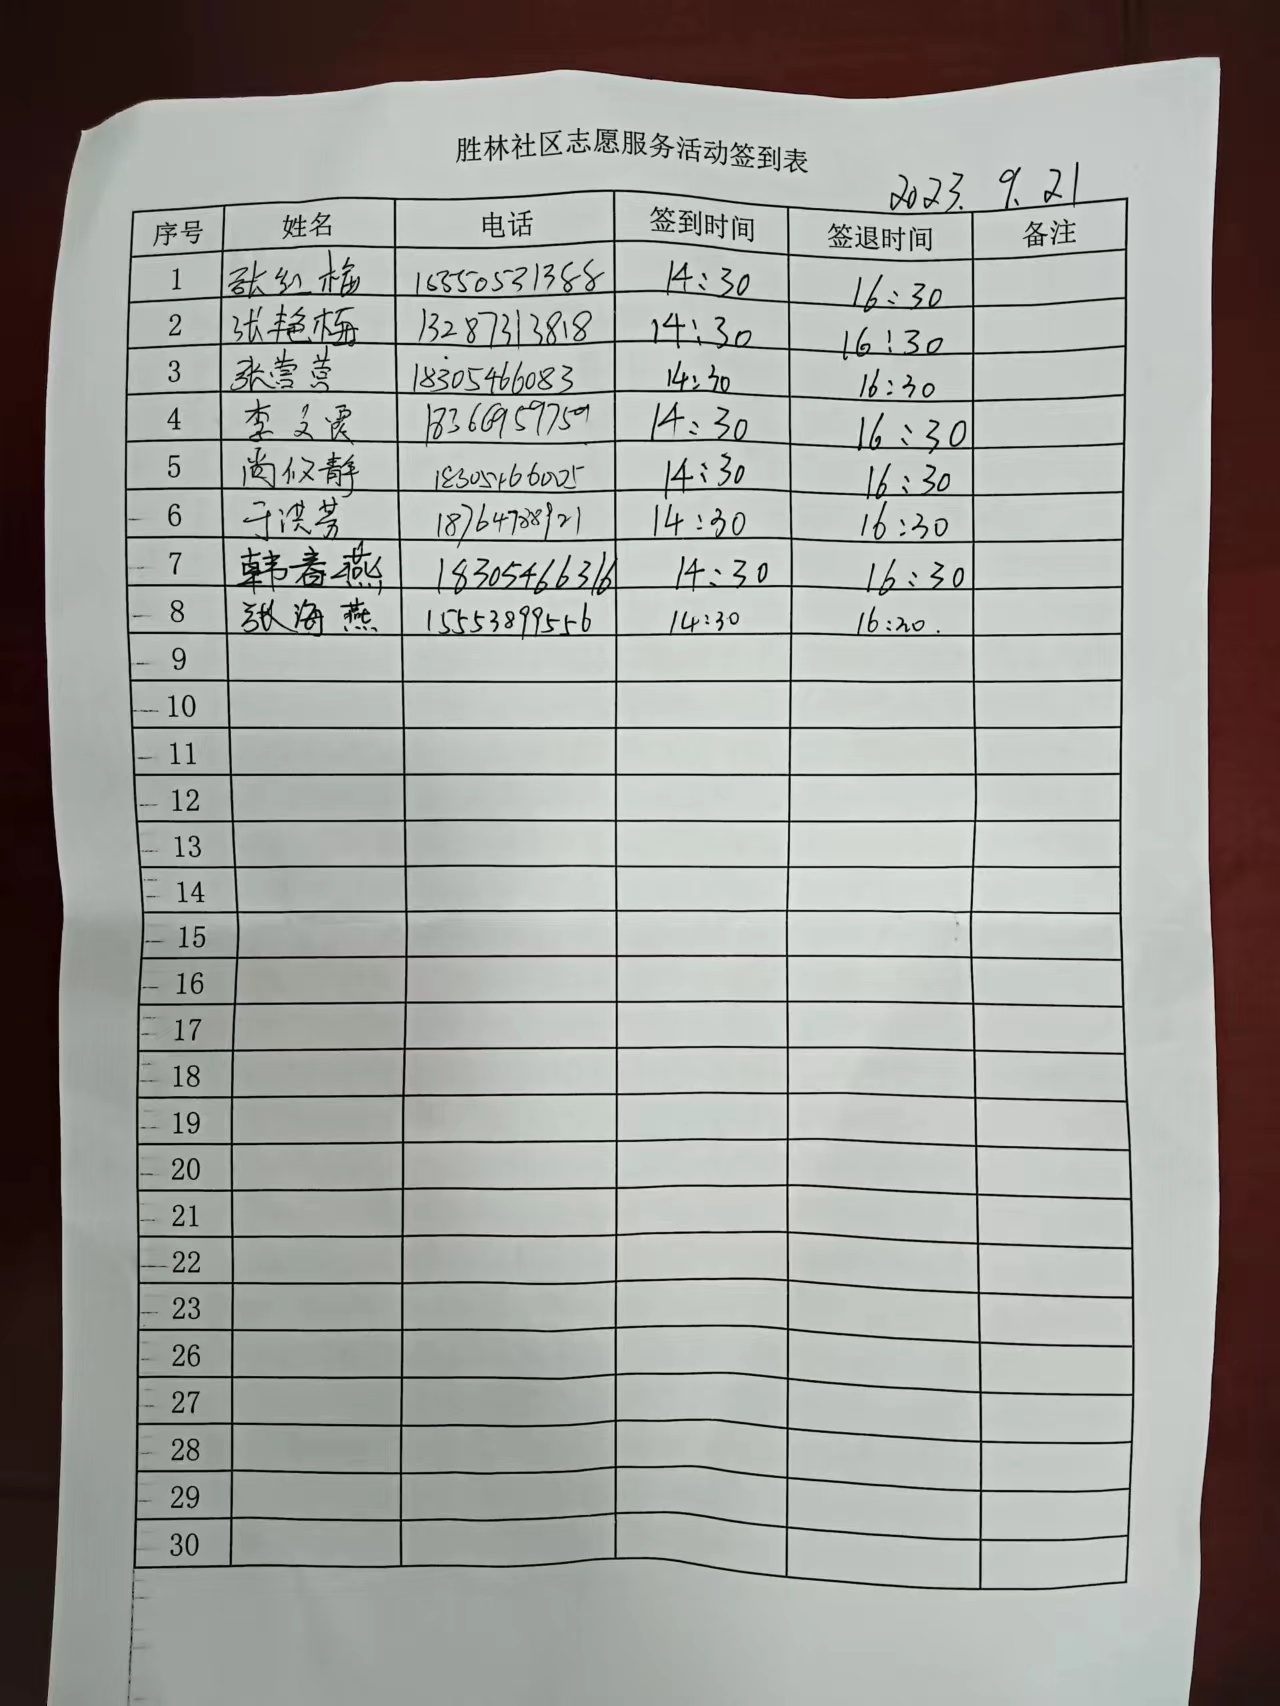 胜林社区志愿服务活动签到表
2023. 9. 21
序号 姓名 电话 签到时间 签退时间 备注
1 张红梅 14:30 16:30
2 张艳梅 13287313818 14:30 16:30
3 张营营 18305466083 14:30 16:30
4 李文霞 14:30 16:30
5 尚仪静 18305466025 14:30 16:30
6 于洪芳 18764738921 14:30 16:30
7 韩春燕 18305466316 14:30 16:30
8 张海燕 15553899556 14:30 16:30.
9
10
11
12
13
14
15
16
17
18
19
20
21
22
23
26
27
28
29
30